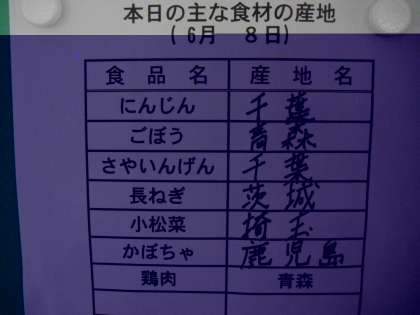 本日の主な食材の産地
( 6月 8日)
食品名 産地名
にんじん 千葉
ごぼう 青森
さやいんげん 千葉
長ねぎ 茨城
小松菜 埼玉
かぼちゃ 鹿児島
鶏肉 青森